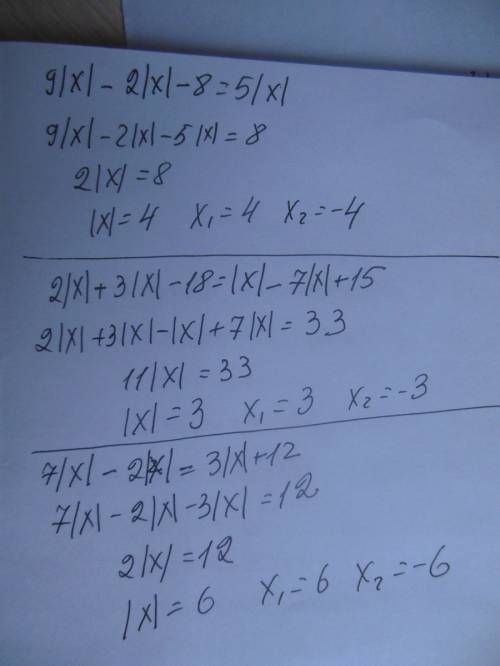 9|x| - 2|x| - 8 = 5|x|
9|x| - 2|x| - 5|x| = 8
2|x| = 8
|x| = 4 x₁ = 4 x₂ = -4
2|x| + 3|x| - 18 = |x| - 7|x| + 15
2|x| + 3|x| - |x| + 7|x| = 33
11|x| = 33
|x| = 3 x₁ = 3 x₂ = -3
7|x| - 2|x| = 3|x| + 12
7|x| - 2|x| - 3|x| = 12
2|x| = 12
|x| = 6 x₁ = 6 x₂ = -6